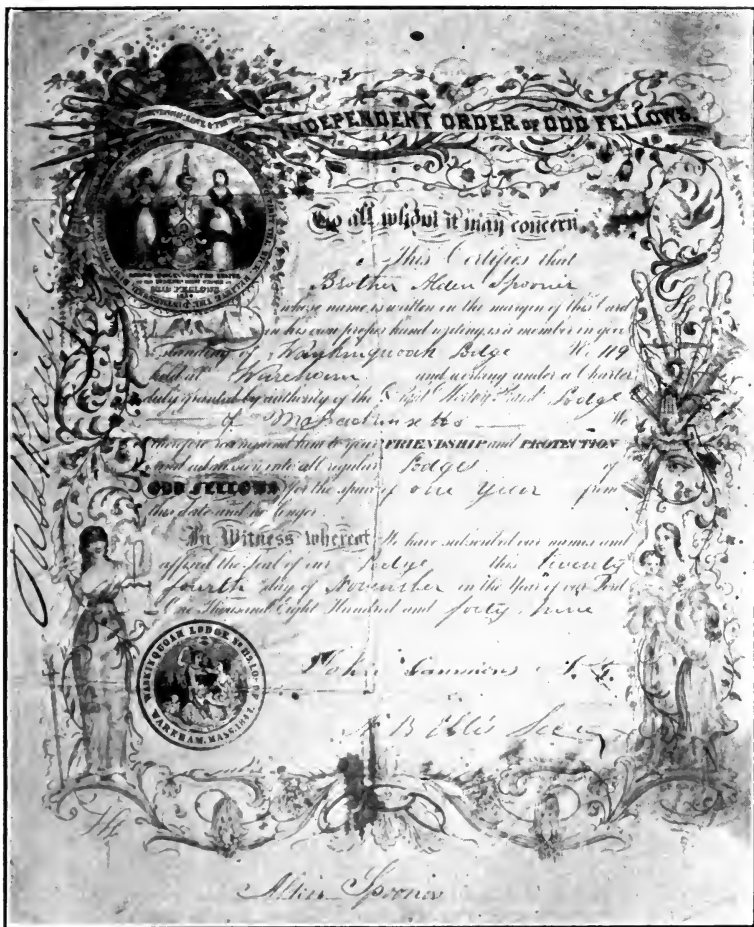 FRIENDSHIP, LOVE & TRUTH
INDEPENDENT ORDER OF ODD FELLOWS.
To all whom it may concern,
This Certifies that
Brother Alden Spooner
whose name is written on the margin of this Card
in his own proper hand writing, is a member in good
standing of Lodge No 119
held at Wareham and working under a Charter
duly granted by authority of the Lodge
of Massachusetts We
therefore recommend him to your FRIENDSHIP and PROTECTION
and admission into all regular Lodges of
ODD FELLOWS for the space of one year from
this date and no longer
In Witness whereof We have subscribed our names and
affixed the Seal of our Lodge this twenty
fourth day of November in the Year of our Lord
One Thousand Eight Hundred and forty nine
LODGE No 119, I.O. OF
WAREHAM, MASS. 1847.
B Ellis Secy
Alden Spooner